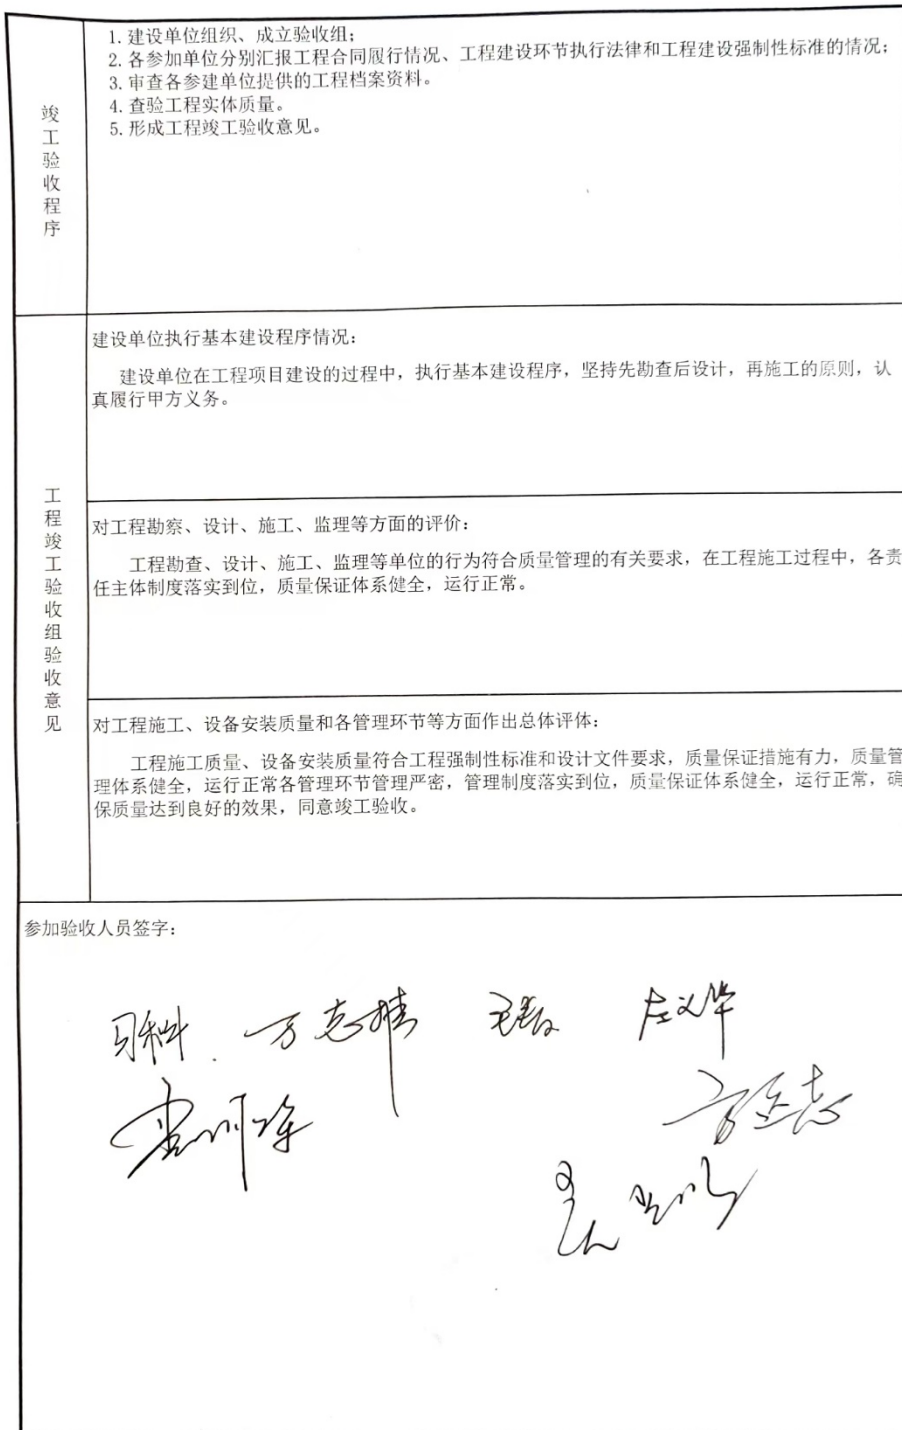 竣工验收程序
1. 建设单位组织、成立验收组；
2. 各参加单位分别汇报工程合同履行情况、工程建设环节执行法律和工程建设强制性标准的情况；
3. 审查各参建单位提供的工程档案资料。
4. 查验工程实体质量。
5. 形成工程竣工验收意见。
工程竣工验收组验收意见
建设单位执行基本建设程序情况：
建设单位在工程项目建设的过程中，执行基本建设程序，坚持先勘查后设计，再施工的原则，认
真履行甲方义务。
对工程勘察、设计、施工、监理等方面的评价：
工程勘查、设计、施工、监理等单位的行为符合质量管理的有关要求，在工程施工过程中，各责
任主体制度落实到位，质量保证体系健全，运行正常。
对工程施工、设备安装质量和各管理环节等方面作出总体评体：
工程施工质量、设备安装质量符合工程强制性标准和设计文件要求，质量保证措施有力，质量管
理体系健全，运行正常各管理环节管理严密，管理制度落实到位，质量保证体系健全，运行正常，确
保质量达到良好的效果，同意竣工验收。
参加验收人员签字：